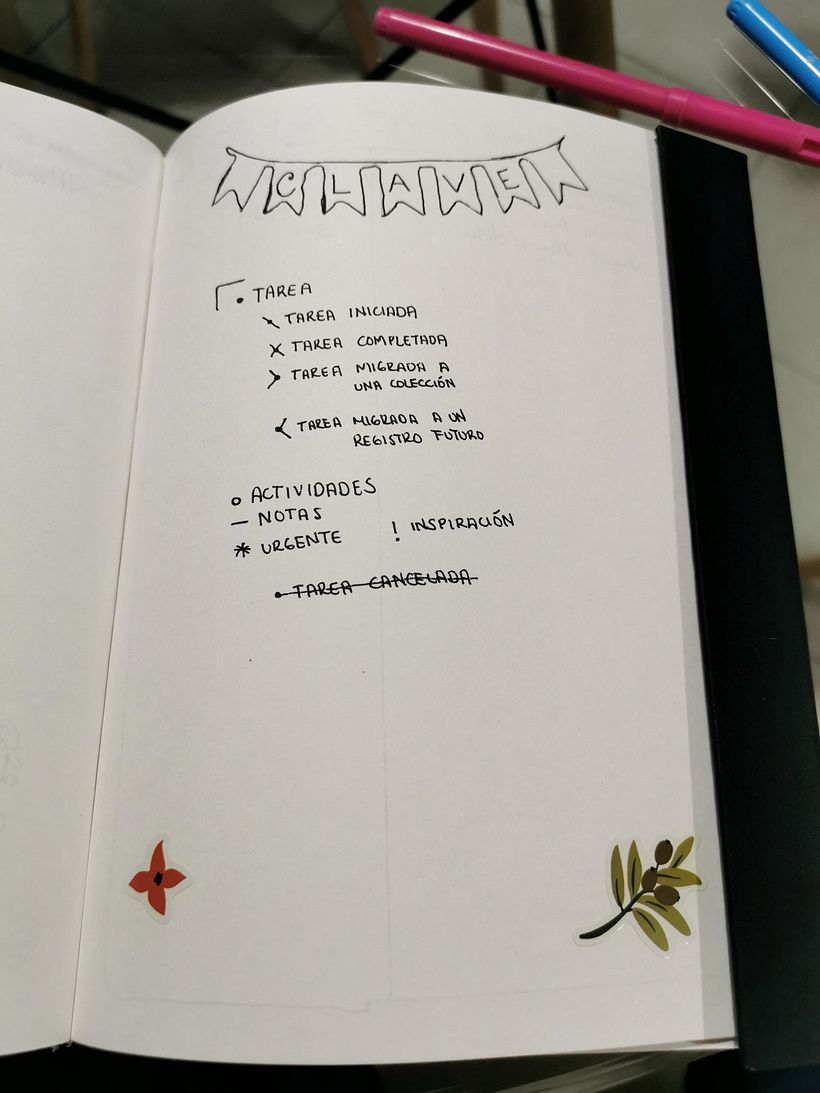 CLAVE
• TAREA
\ TAREA INICIADA
X TAREA COMPLETADA
> TAREA MIGRADA A
UNA COLECCIÓN
< TAREA MIGRADA A UN
REGISTRO FUTURO
o ACTIVIDADES
— NOTAS
* URGENTE ! INSPIRACIÓN
• TAREA CANCELADA